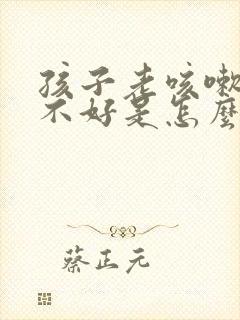 孩子老咳嗽
不好是怎麼
蔡正元